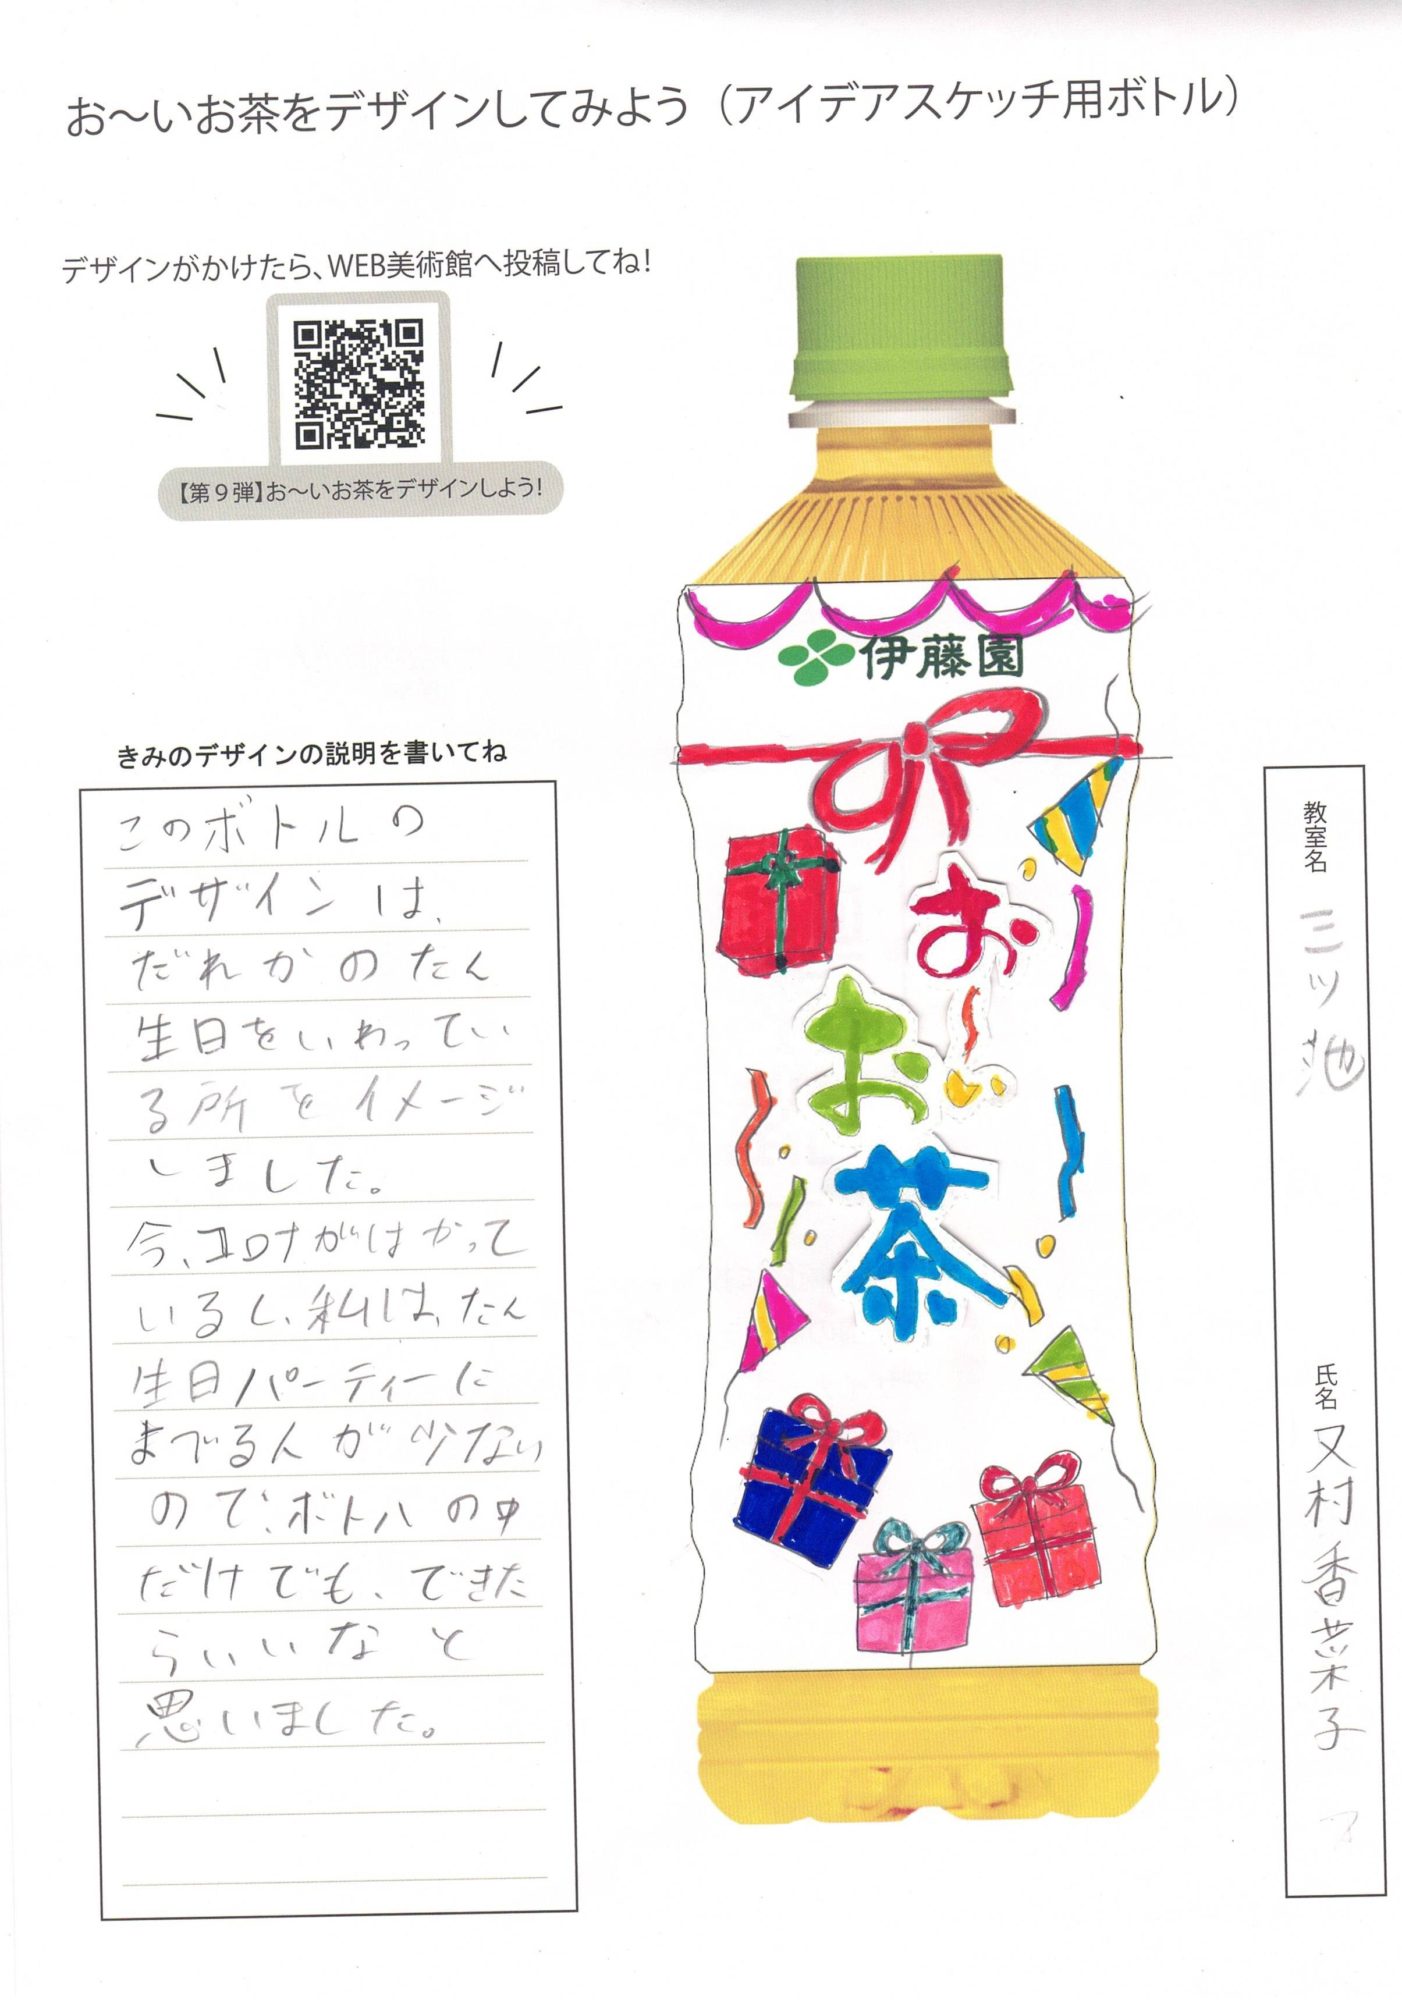 お～いお茶をデザインしてみよう（アイデアスケッチ用ボトル）
デザインがかけたら、WEB美術館へ投稿してね！
【第９弾】お～いお茶をデザインしよう！
きみのデザインの説明を書いてね
このボトルの
デザインは、
だれかのたん
生日をいわってい
る所をイメージ
しました。
今、コロナがはやって
いるし、私は、たん
生日パーティーに
までる人が少ない
ので、ボトルの中
だけでも、できた
らいいなと
思いました。
伊藤園
お～い
お茶
教室名 三ツ池
氏名 又村香菜子